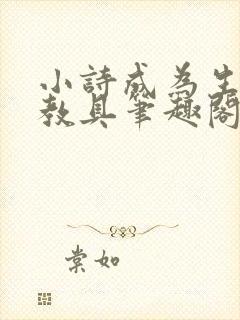 小詩成為生
教具筆趣閣
棠如